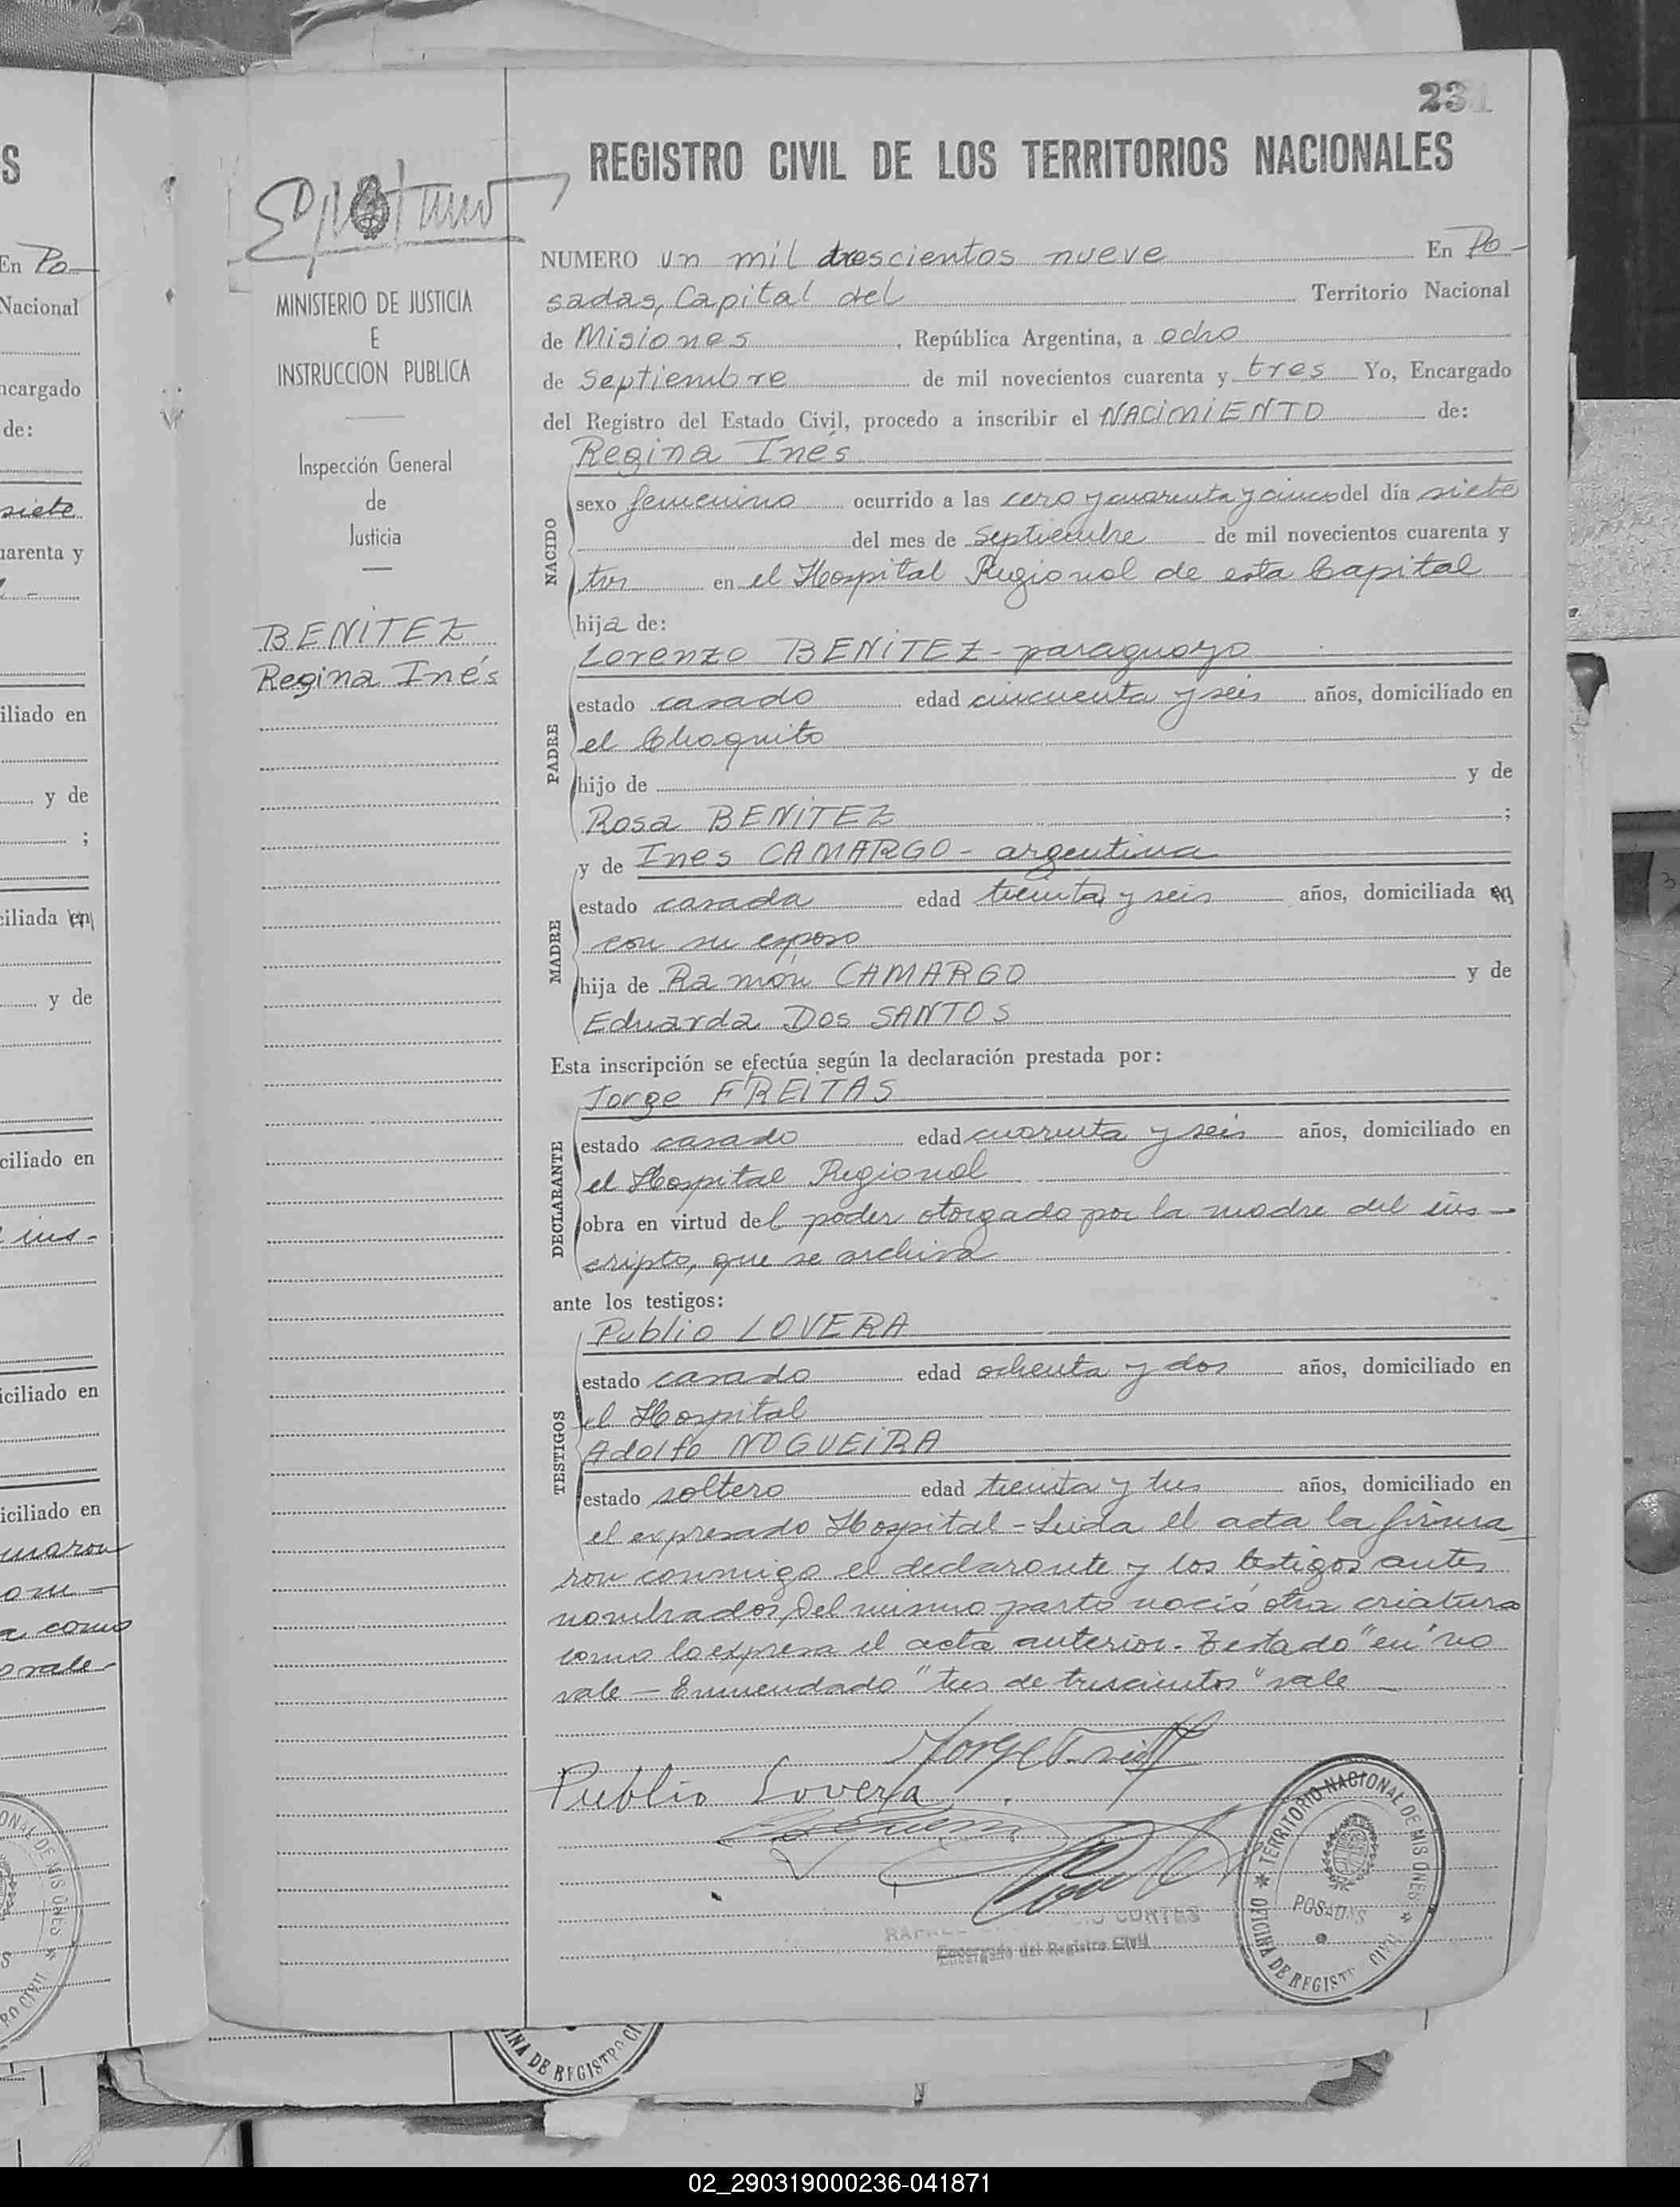 231
REGISTRO CIVIL DE LOS TERRITORIOS NACIONALES
MINISTERIO DE JUSTICIA
E
INSTRUCCION PUBLICA
Inspección General
de
Justicia
BENITEZ
Regina Inés
NUMERO un mil trescientos nueve En Po-
sadas, Capital del Territorio Nacional
de Misiones, República Argentina, a ocho
de Septiembre de mil novecientos cuarenta y tres Yo, Encargado
del Registro del Estado Civil, procedo a inscribir el NACIMIENTO de:
Regina Inés
NACIDO
sexo femenino ocurrido a las cero y cuarenta y cinco del día siete
del mes de Septiembre de mil novecientos cuarenta y
tres en el Hospital Regional de esta Capital
hija de:
Lorenzo BENITEZ - paraguayo
PADRE
estado casado edad cincuenta y seis años, domiciliado en
el Chaquito
hijo de y de
Rosa BENITEZ ;
y de Ines CAMARGO - argentina
MADRE
estado casada edad treinta y seis años, domiciliada en
con su esposo
hija de Ramón CAMARGO y de
Eduarda DOS SANTOS
Esta inscripción se efectúa según la declaración prestada por:
Jorge FREITAS
DECLARANTE
estado casado edad cuarenta y seis años, domiciliado en
el Hospital Regional
obra en virtud del poder otorgado por la madre del ins-
cripto, que se archiva
ante los testigos:
Publio LOVERA
TESTIGOS
estado casado edad ochenta y dos años, domiciliado en
el Hospital
Adolfo NOGUEIRA
estado soltero edad treinta y tres años, domiciliado en
el expresado Hospital - Leida el acta la firma
ron conmigo el declarante y los testigos antes
nombrados, Del mismo parto nació otra criatura
como lo expresa el acta anterior. Testado "en" no
vale - Enmendado "tres de trescientos" vale
Publio Lovera
CORTES
Encargado del Registro Civil
TERRITORIO NACIONAL DE MISIONES
POSADAS
OFICINA DE REGISTRO CIVIL
INA DE REGISTRO CI
02_290319000236-041871